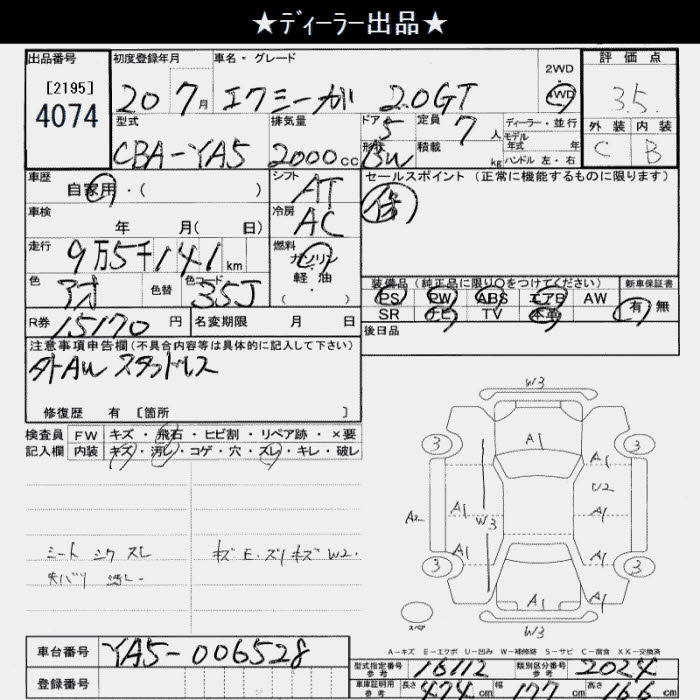 ★ディーラー出品★
出品番号
[2195]
4074
初度登録年月
20 7月
車名・グレード
エクシーガ 2.0GT
2WD
4WD
評価点
3.5
外装 内装
C B
型式
CBA-YA5
排気量
2000cc
ドア 5
形状 BW
定員 7人
積載 kg
ディーラー・並行
モデル年式 年
ハンドル 左・右
車歴
自家用・( )
シフト
AT
セールスポイント(正常に機能するものに限ります)
車検
年 月( 日)
冷房
AC
走行
9万5千141km
燃料
ガソリン
軽油
( )
色
色替
色コード
35J
R券 15170円
名変期限 月 日
装備品(純正品に限り○をつけてください)
新車保証書
PS PW ABS エアB AW
SR ナビ TV 本革
有 無
後日品
注意事項申告欄(不具合内容等は具体的に記入して下さい)
外AW スタットレス
修復歴 有 [箇所 ]
検査員記入欄
FW キズ・飛石・ヒビ割・リペア跡・×要
内装 キズ・汚レ・コゲ・穴・スレ・キレ・破レ
シート シワ スレ
キズ E・ズリキズ W2.
W3
A1
3 3
A1
U2
A2 A1 W3 A1
A1 A1
3 3
A1 A1
W3
スペア
A-キズ E-エクボ U-凹み W-補修跡 S-サビ C-腐食 XX-交換済
車台番号
YA5-006528
登録番号
型式指定番号参考 16112
類別区分番号参考 2024
車庫証明用参考 長さ 474cm 幅 177cm 高さ 166cm